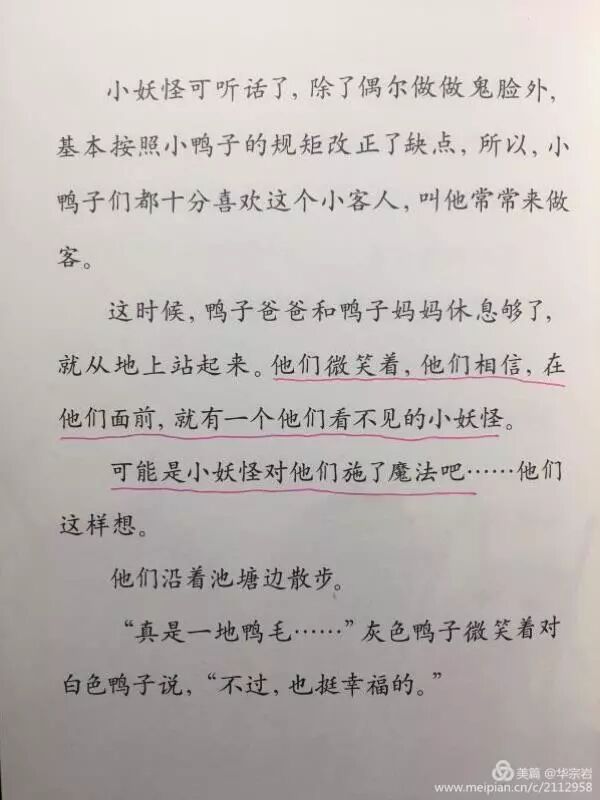 小妖怪可听话了，除了偶尔做做鬼脸外，
基本按照小鸭子的规矩改正了缺点，所以，小
鸭子们都十分喜欢这个小客人，叫他常常来做
客。
这时候，鸭子爸爸和鸭子妈妈休息够了，
就从地上站起来。他们微笑着，他们相信，在
他们面前，就有一个他们看不见的小妖怪。
可能是小妖怪对他们施了魔法吧……他们
这样想。
他们沿着池塘边散步。
“真是一地鸭毛……”灰色鸭子微笑着对
白色鸭子说，“不过，也挺幸福的。”
美篇 @华宗岩
www.meipian.cn/c/2112958